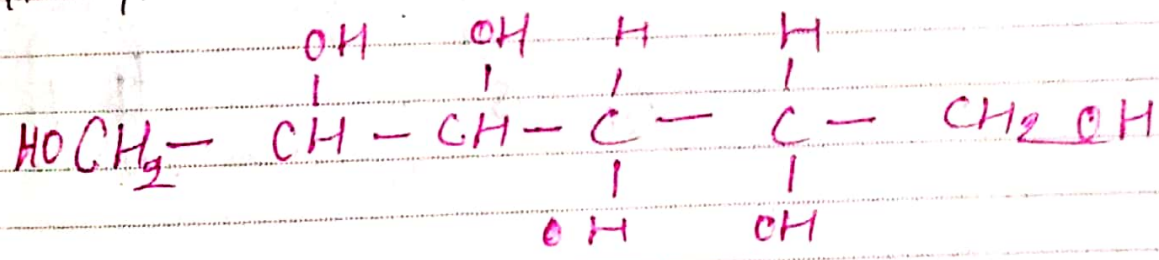 OH OH H H
HOCH₂ - CH - CH - C - C - CH₂OH
OH OH